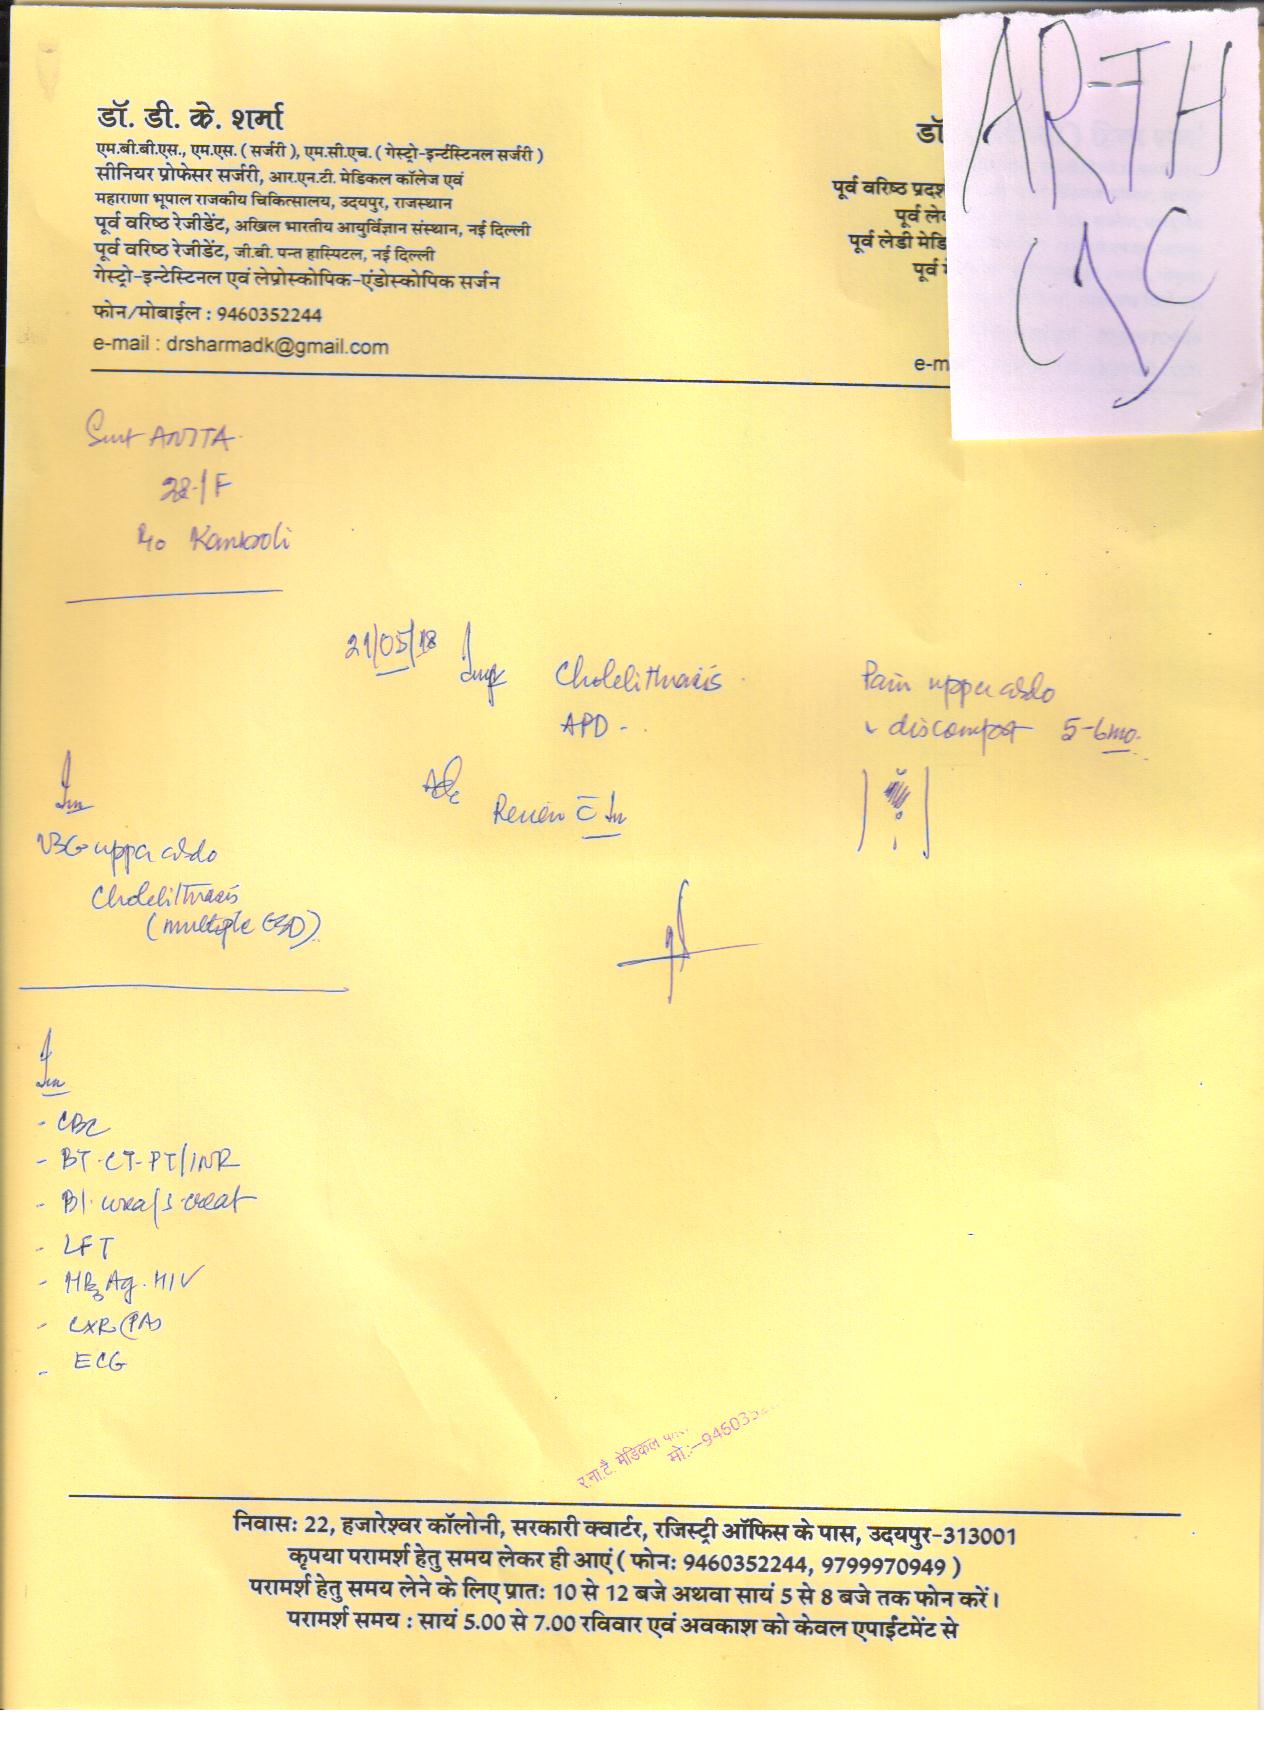 डॉ. डी. के. शर्मा
एम.बी.बी.एस., एम.एस. ( सर्जरी ), एम.सी.एच. ( गेस्ट्रो-इन्टेंस्टिनल सर्जरी )
सीनियर प्रोफेसर सर्जरी, आर.एन.टी. मेडिकल कॉलेज एवं
महाराणा भूपाल राजकीय चिकित्सालय, उदयपुर, राजस्थान
पूर्व वरिष्ठ रेजीडेंट, अखिल भारतीय आयुर्विज्ञान संस्थान, नई दिल्ली
पूर्व वरिष्ठ रेजीडेंट, जी.बी. पन्त हास्पिटल, नई दिल्ली
गेस्ट्रो-इन्टेस्टिनल एवं लेप्रोस्कोपिक-एंडोस्कोपिक सर्जन
फोन/मोबाईल : 9460352244
e-mail : drsharmadk@gmail.com
डॉ
पूर्व वरिष्ठ प्रदश
पूर्व ले
पूर्व लेडी मेडि
पूर्व
e-m
ARTH
Smt ANITA
28/F
R/o
21/05/18
Cholelithiasis
APD -
Pain upper abdo
discomfort 5-6mo.
Adv
Review c̄ Inv
Inv
USG upper abdo
Cholelithiasis
(multiple GSD)
Inv
- CBC
- BT-CT-PT/INR
- Bl. urea/s. creat
- LFT
- HBsAg. HIV
- CXR (PA)
- ECG
र.ना.टै. मेडिकल
मो.:-9460352
निवास: 22, हजारेश्वर कॉलोनी, सरकारी क्वार्टर, रजिस्ट्री ऑफिस के पास, उदयपुर-313001
कृपया परामर्श हेतु समय लेकर ही आएं ( फोन: 9460352244, 9799970949 )
परामर्श हेतु समय लेने के लिए प्रात: 10 से 12 बजे अथवा सायं 5 से 8 बजे तक फोन करें।
परामर्श समय : सायं 5.00 से 7.00 रविवार एवं अवकाश को केवल एपाईंटमेंट से